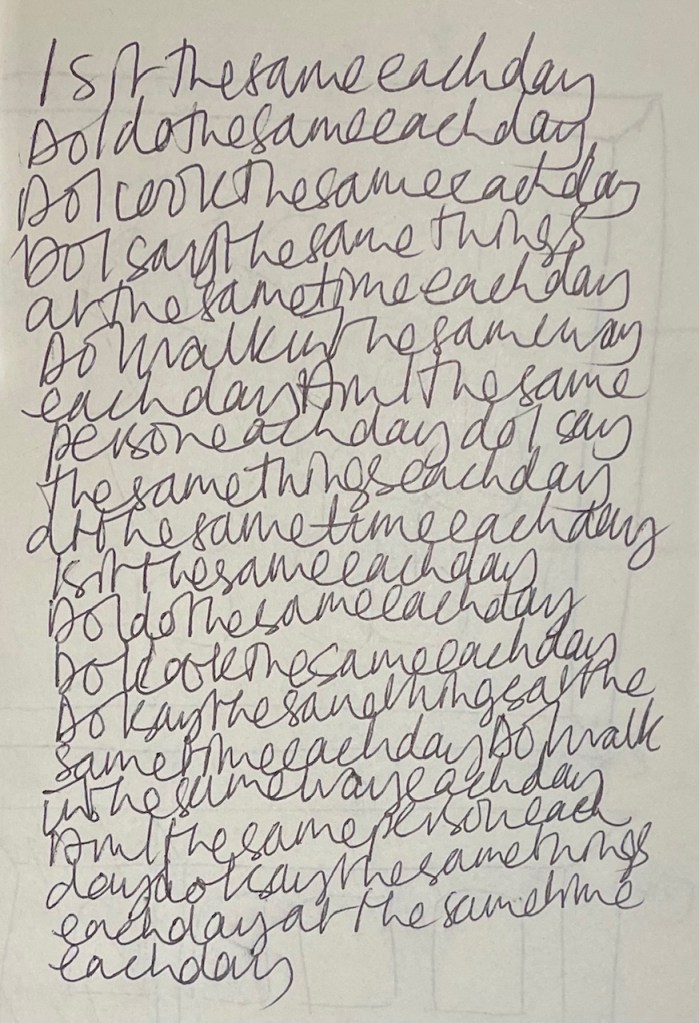 Is it the same each day
Do I do the same each day
Do I cook the same each day
Do I say the same things
at the same time each day
Do I walk in the same way
each day Am I the same
person each day do I say
the same things each day
at the same time each day
Is it the same each day
Do I do the same each day
Do I cook the same each day
Do I say the same things at the
same time each day Do I walk
in the same way each day
Am I the same person each
day do I say the same things
each day at the same time
each day